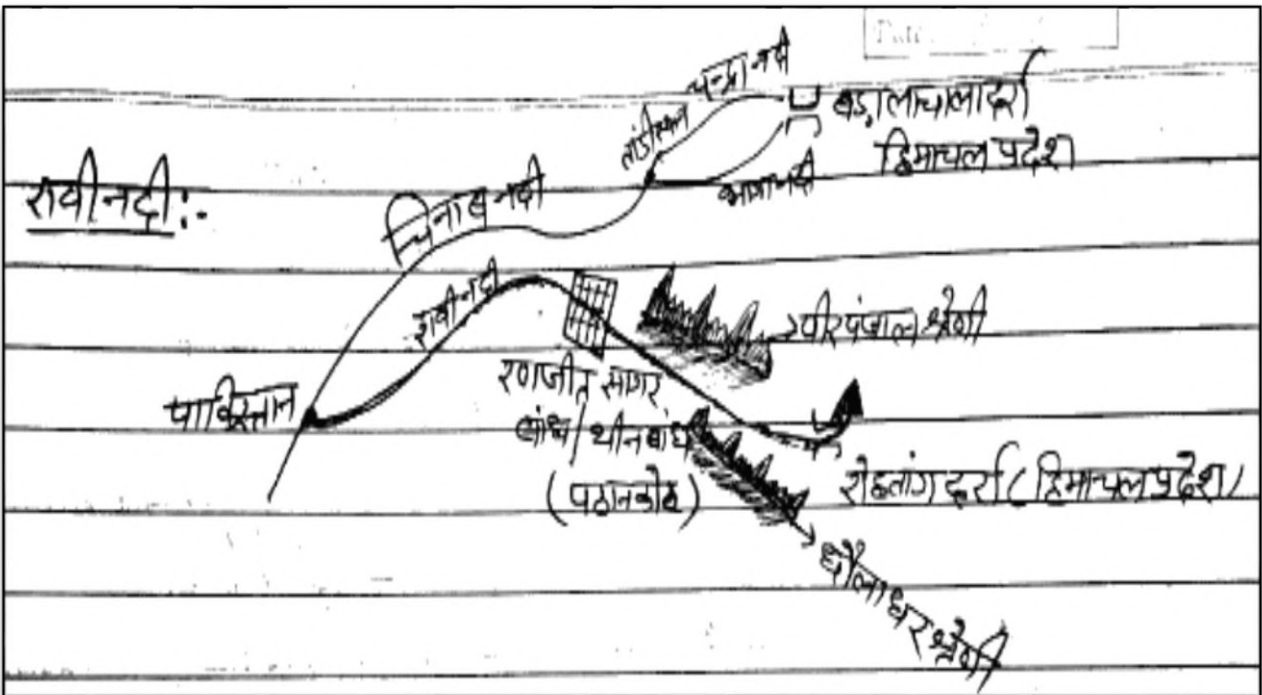 चन्द्रा नदी
बड़ालाचाला दर्रा
हिमाचल प्रदेश
तांडी स्थान
भागा नदी
रावी नदी:-
चिनाब नदी
रावी नदी
पीरपंजाल श्रेणी
रणजीत सागर
बांध / थीन बांध
(पठानकोट)
पाकिस्तान
रोहतांग दर्रा (हिमाचल प्रदेश)
धौलाधर श्रेणी